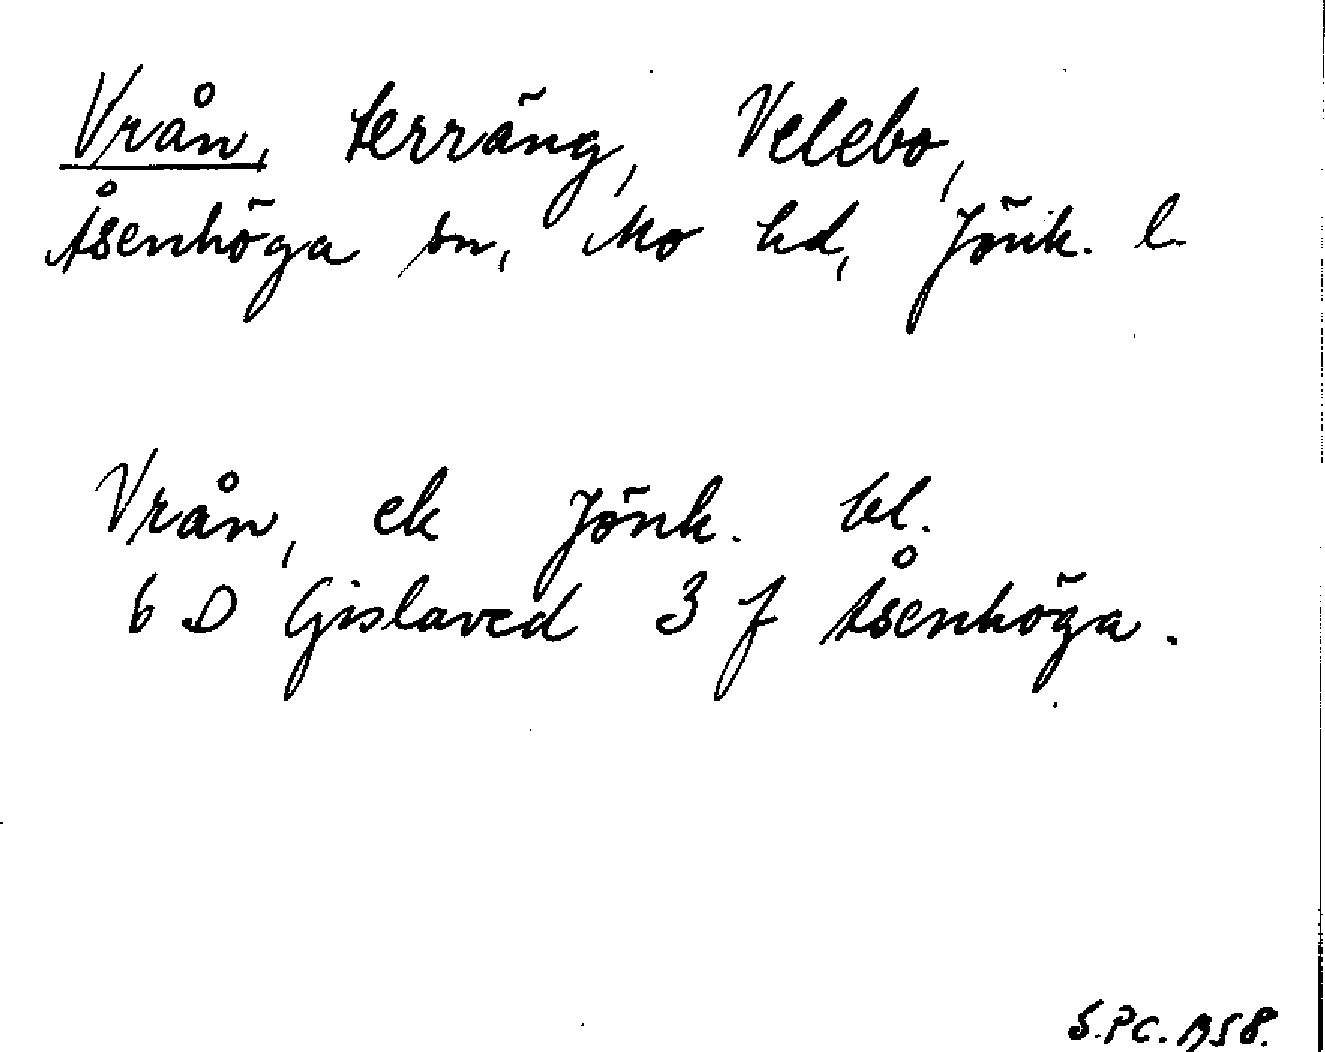 Vrån, terräng, Velebo,
Åsenhöga sn, Mo hd, Jönk. l
Vrån, ek Jönk. bl.
6 D Gislaved 3 f Åsenhöga.
S.PC. 1958.